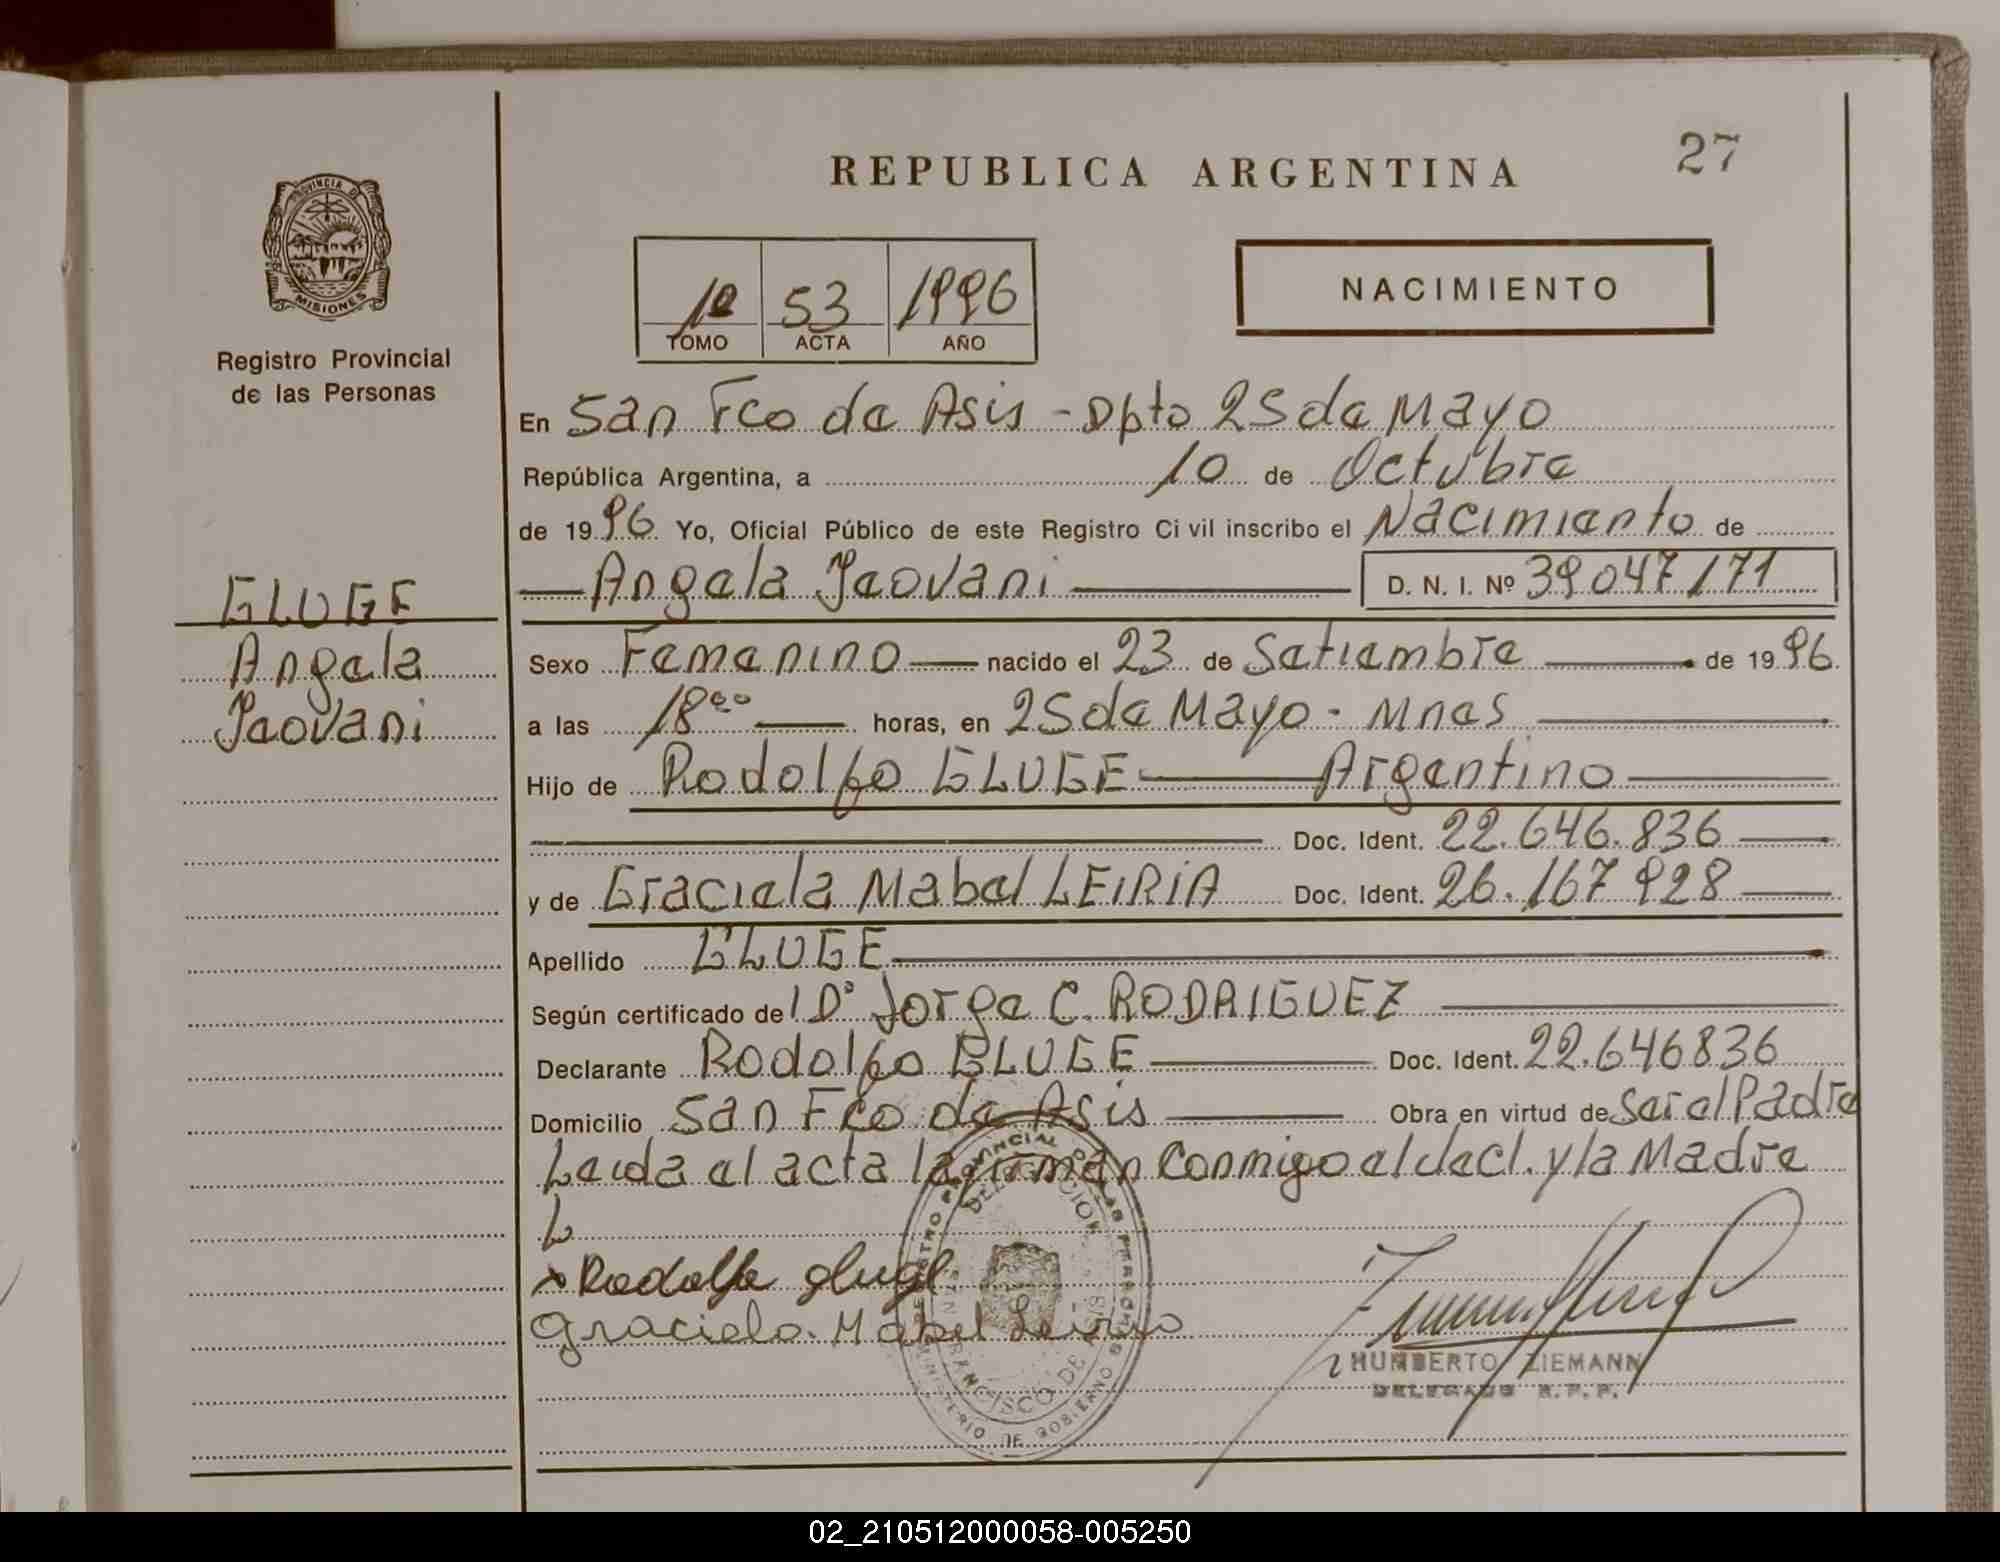 27
REPUBLICA ARGENTINA
PROVINCIA DE
MISIONES
Registro Provincial
de las Personas
1º 53 1996
TOMO ACTA AÑO
NACIMIENTO
En San Fco de Asis - Dpto 25 de Mayo
República Argentina, a 10 de Octubre
de 1996 Yo, Oficial Público de este Registro Civil inscribo el Nacimiento de
Angela Jeovani D. N. I. Nº 39.047/171
GLUGE
Angela
Jeovani
Sexo Femenino nacido el 23 de Setiembre de 1996
a las 18ºº horas, en 25 de Mayo - Mnes
Hijo de Rodolfo GLUGE Argentino
Doc. Ident. 22.646.836
y de Graciela Mabel LEIRIA Doc. Ident. 26.167928
Apellido GLUGE
Según certificado de Dº Jorge C. RODRIGUEZ
Declarante Rodolfo GLUGE Doc. Ident. 22.646836
Domicilio San Fco de Asis Obra en virtud de Ser el Padre
Leida el acta la firman conmigo el decl. y la Madre
x Rodolfo gluge
Graciela Mabel Leiria
HUMBERTO ZIEMANN
DELEGADO R.P.P.
02_210512000058-005250